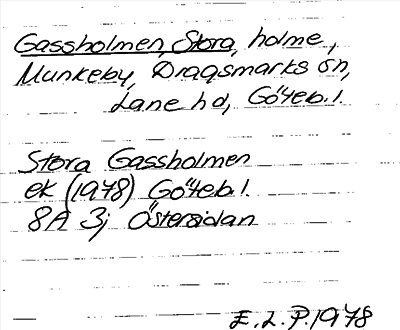 Gassholmen, Stora, holme,
Munkeby, Dragsmarks sn,
Lane hd, Göteb. l.
Stora Gassholmen
ek (1978) Göteb. l.
8A 3j Östersidan
E. L. P. 1978